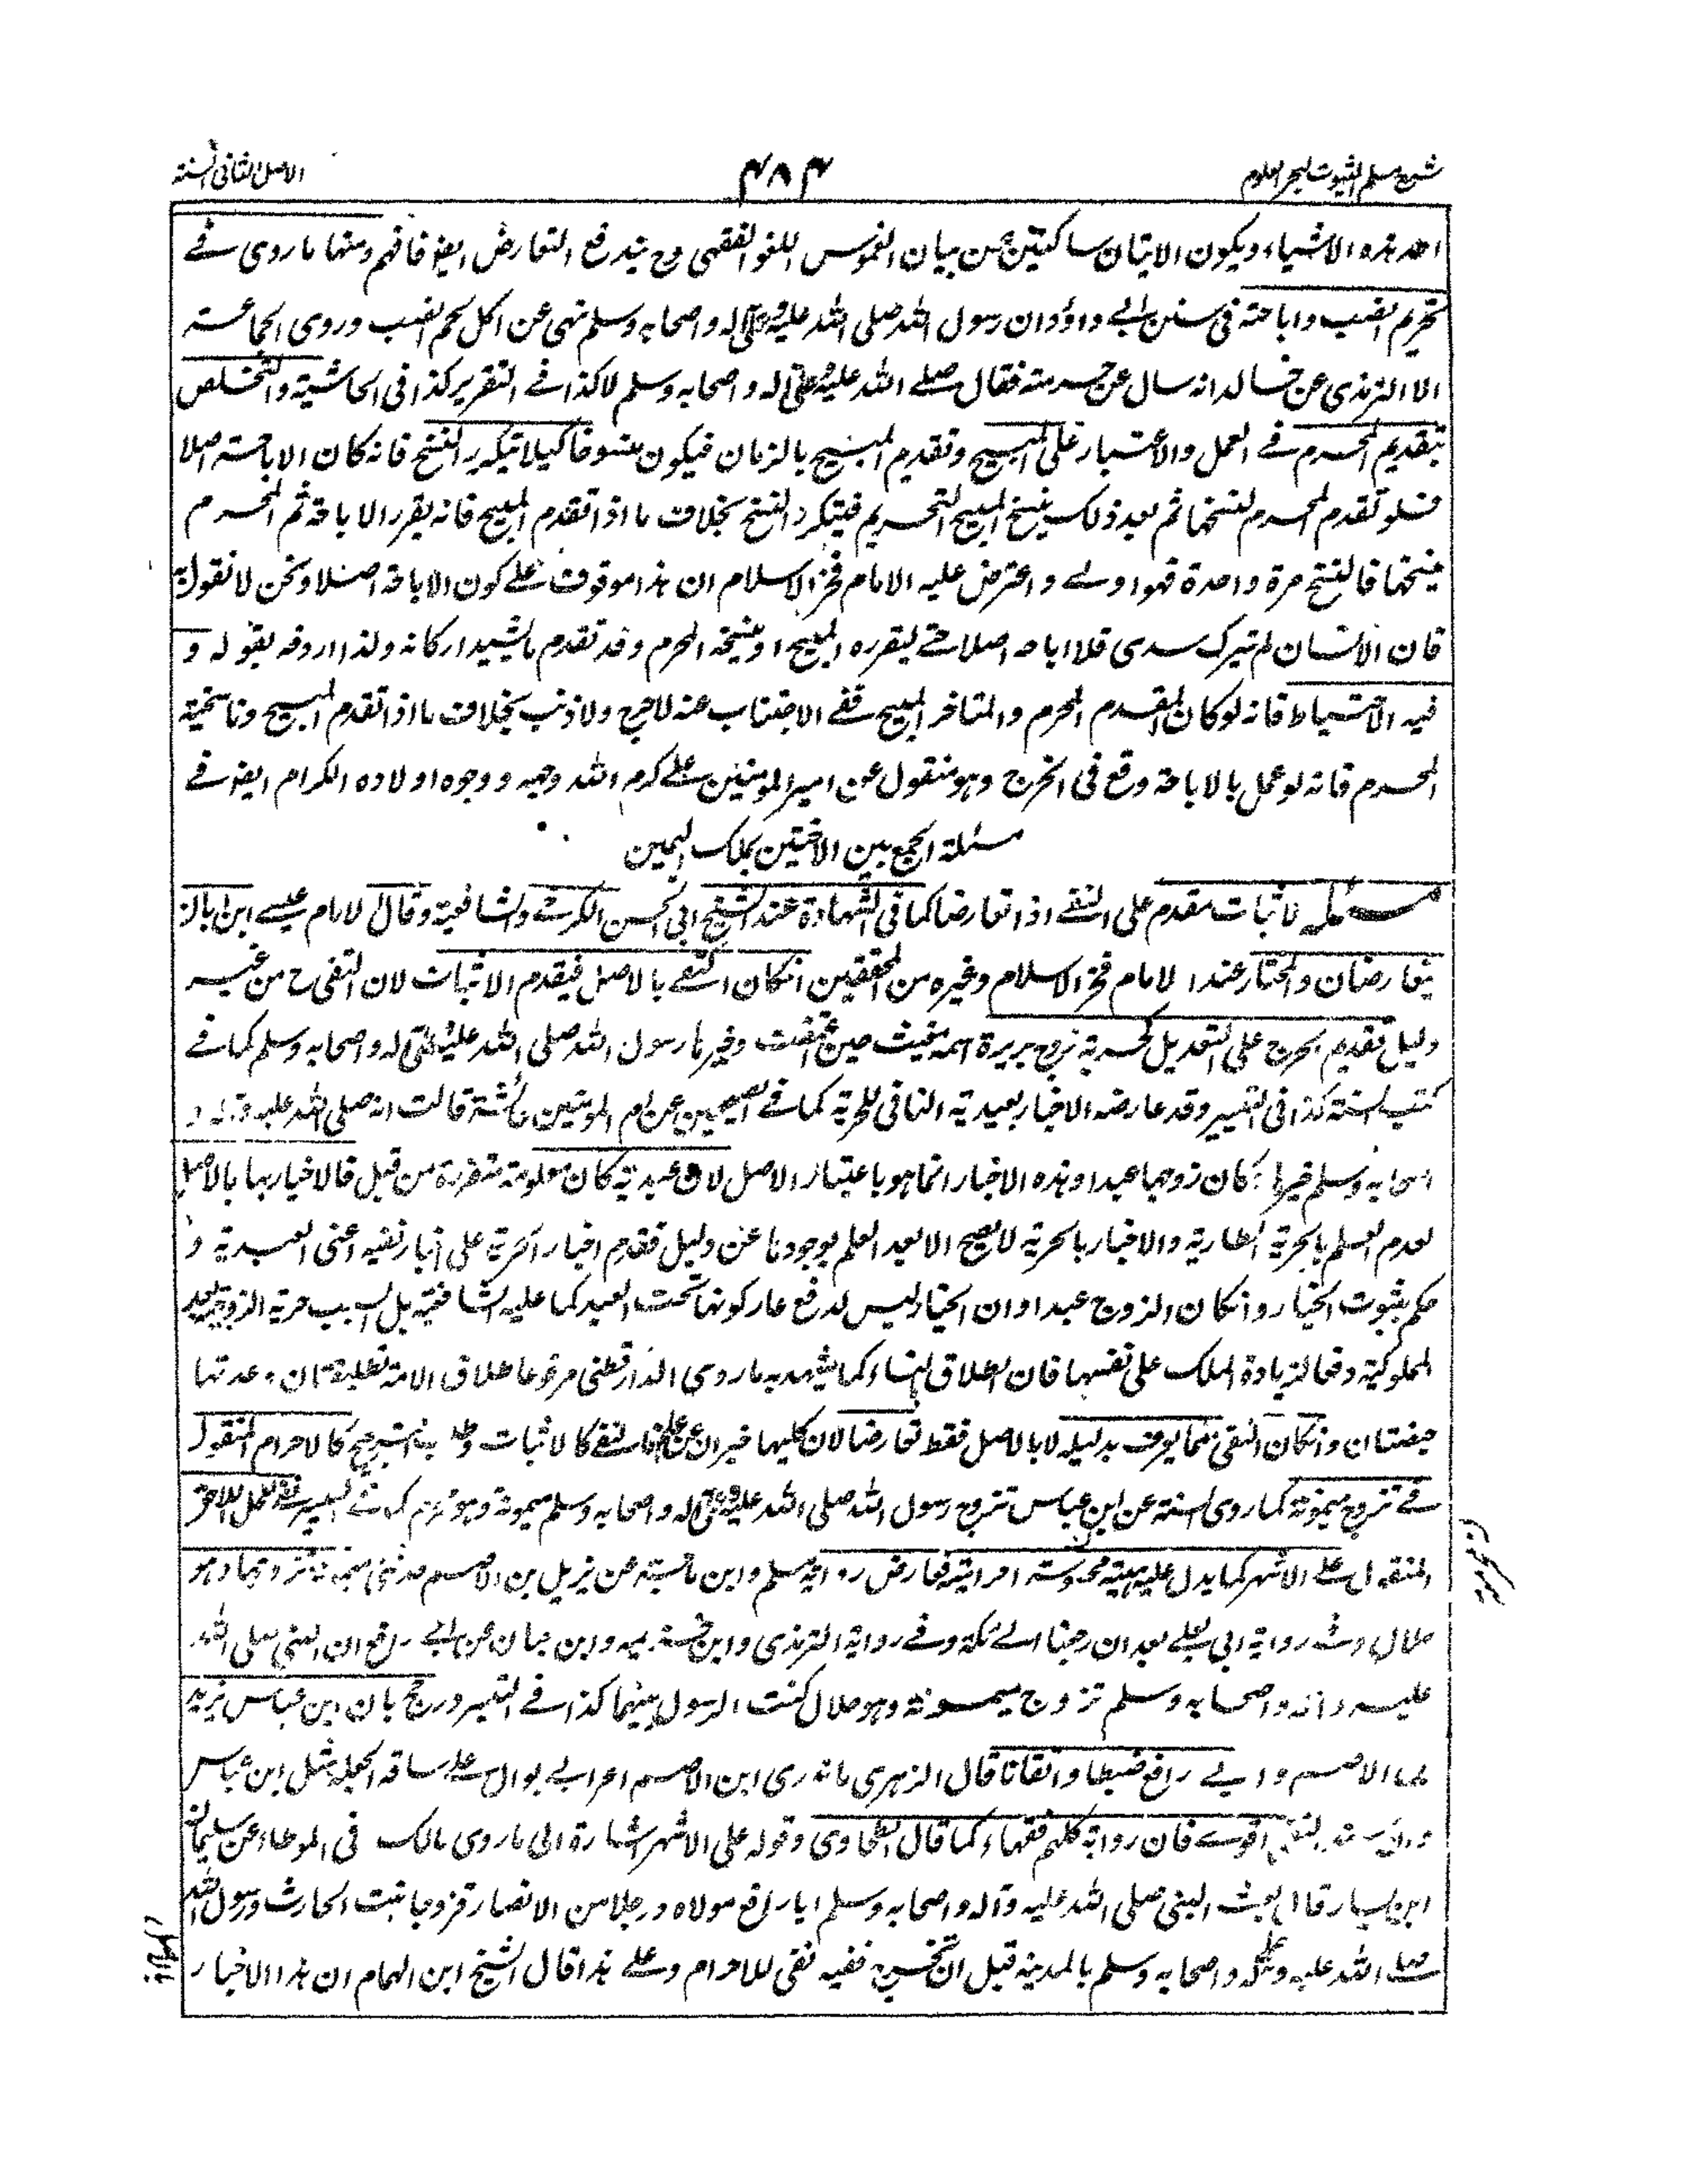 شرح مسلم الثبوت لبحر العلوم
٤٨٤
الاصل الثانی السنة
احد هذه الاشياء ويكون الايتان ساكتين عن بيان الغموس اللغو الفقهى وح يندفع التعارض ايضا فافهم ومنها ما روى فى
تحريم الضب واباحته فى سنن ابى داؤد ان رسول الله صلى الله عليه وعلى آله واصحابه وسلم نهى عن اكل لحم الضب وروى الجماعة
الا الترمذى عن خالد انه سال عن حرمته فقال صلى الله عليه وعلى آله واصحابه وسلم لا كذا فى التقرير كذا فى الحاشية والتخلص
بتقديم المحرم فى العمل والاعتبار على المبيح وتقدم المبيح بالزمان فيكون منسوخا كيلا يتكرر النسخ فانه كان الاباحة اصلا
فلو تقدم المحرم لنسخها ثم بعد ذلك ينسخ المبيح التحريم فيتكرر النسخ بخلاف ما اذا تقدم المبيح فانه يقرر الاباحة ثم المحرم
ينسخها فالنسخ مرة واحدة فهو اولى واعترض عليه الامام فخر الاسلام ان هذا موقوف على كون الاباحة اصلا ونحن لا نقول به
فان الانسان لم يترك سدى فلا اباحة اصلا حتى يقرره المبيح او ينسخه المحرم وقد تقدم ما يشيد اركانه ولذا اردفه بقوله و
فيه الاحتياط فانه لو كان المقدم المحرم والمتاخر المبيح ففى الاجتناب عنه لا حرج ولا ذنب بخلاف ما اذا تقدم المبيح وناسخية
المحرم فانه لو عمل بالاباحة وقع فى الحرج وهو منقول عن امير المومنين على كرم الله وجهه ووجوه اولاده الكرام ايضا فى
مسئلة الجمع بين الاختين بملك اليمين
مسئله الاثبات مقدم على النفى اذا تعارضا كما فى الشهادة عند الشيخ ابى الحسن الكرخى والشافعية وقال الامام عيسى ابن ابان
يتعارضان والمختار عند الامام فخر الاسلام وغيره من المحققين ان كان النفى بالاصل فيقدم الاثبات لان النفى ح من غير
دليل تقديم الجرح على التعديل كحرية زوج بريرة اسمه مغيث حين عتقت وخيرها رسول الله صلى الله عليه وعلى آله واصحابه وسلم كما فى
كتب الستة كذا فى التيسير وقد عارضه الاخبار بعبدية النافى للحرية كما فى الصحيحين عن ام المومنين عائشة قالت انه صلى الله عليه وآله و
اصحابه وسلم خيرها كان زوجها عبدا وهذه الاخبار انما هو باعتبار الاصل لان عبدية كان معلومة متقررة من قبل فالاخبار بها بالاصل
لعدم العلم بالحرية الطارية والاخبار بالحرية لا يصح الا بعد العلم بوجودها عن دليل فقدم اخبار الحرية على اخبار نفيه اعنى العبدية و
حكم بثبوت الخيار وان كان الزوج عبدا وان الخيار ليس لدفع عار كونها تحت العبد كما عليه الشافعية بل لسبب حرية الزوجة بعد
المملوكية دفعا لزيادة الملك على نفسها فان الطلاق بالنساء كما يشهد به ما روى الدارقطنى مرفوعا طلاق الامة تطليقتان وعدتها
حيضتان وان كان النفى مما يعرف بدليله لا بالاصل فقط تعارضا لان كليهما خبران عن علم فالنفى كالاثبات وطلب الترجيح كالاحرام المنقول
فى تزوج ميمونة كما روى الستة عن ابن عباس تزوج رسول الله صلى الله عليه وعلى آله واصحابه وسلم ميمونة وهو محرم كما فى التيسير للحل اللاحق
المنقول على الاشهر كما يدل عليه هيئة محسوسة فعارض رواية مسلم وابن ماجة عن يزيد بن الاصم حدثتنى ميمونة تزوجها وهو
حلال وفى رواية ابى يعلى بعد ان رجعنا الى مكة وفى رواية الترمذى وابن خزيمة وابن حبان عن ابى رافع ان النبى صلى الله
عليه وآله واصحابه وسلم تزوج ميمونة وهو حلال كنت الرسول بينهما كذا فى التيسير ورجح بان ابن عباس يزيد
على الاصم وابى رافع ضبطا واتقانا قال الزهرى ما ندرى ابن الاصم اعرابى بوال على ساقه اتجعله مثل ابن عباس
اقوى فان رواته كلهم فقهاء كما قال الطحاوى وقوله على الاشهر اشارة الى ما روى مالك فى الموطا عن سليمان
ابن يسار قال بعث النبى صلى الله عليه وآله واصحابه وسلم ابا رافع مولاه ورجلا من الانصار فزوجا بنت الحارث ورسول الله
صلى الله عليه وعلى آله واصحابه وسلم بالمدينة قبل ان تخرج ففيه نفى للاحرام وعلى هذا قال الشيخ ابن الهمام ان هذا الاخبار